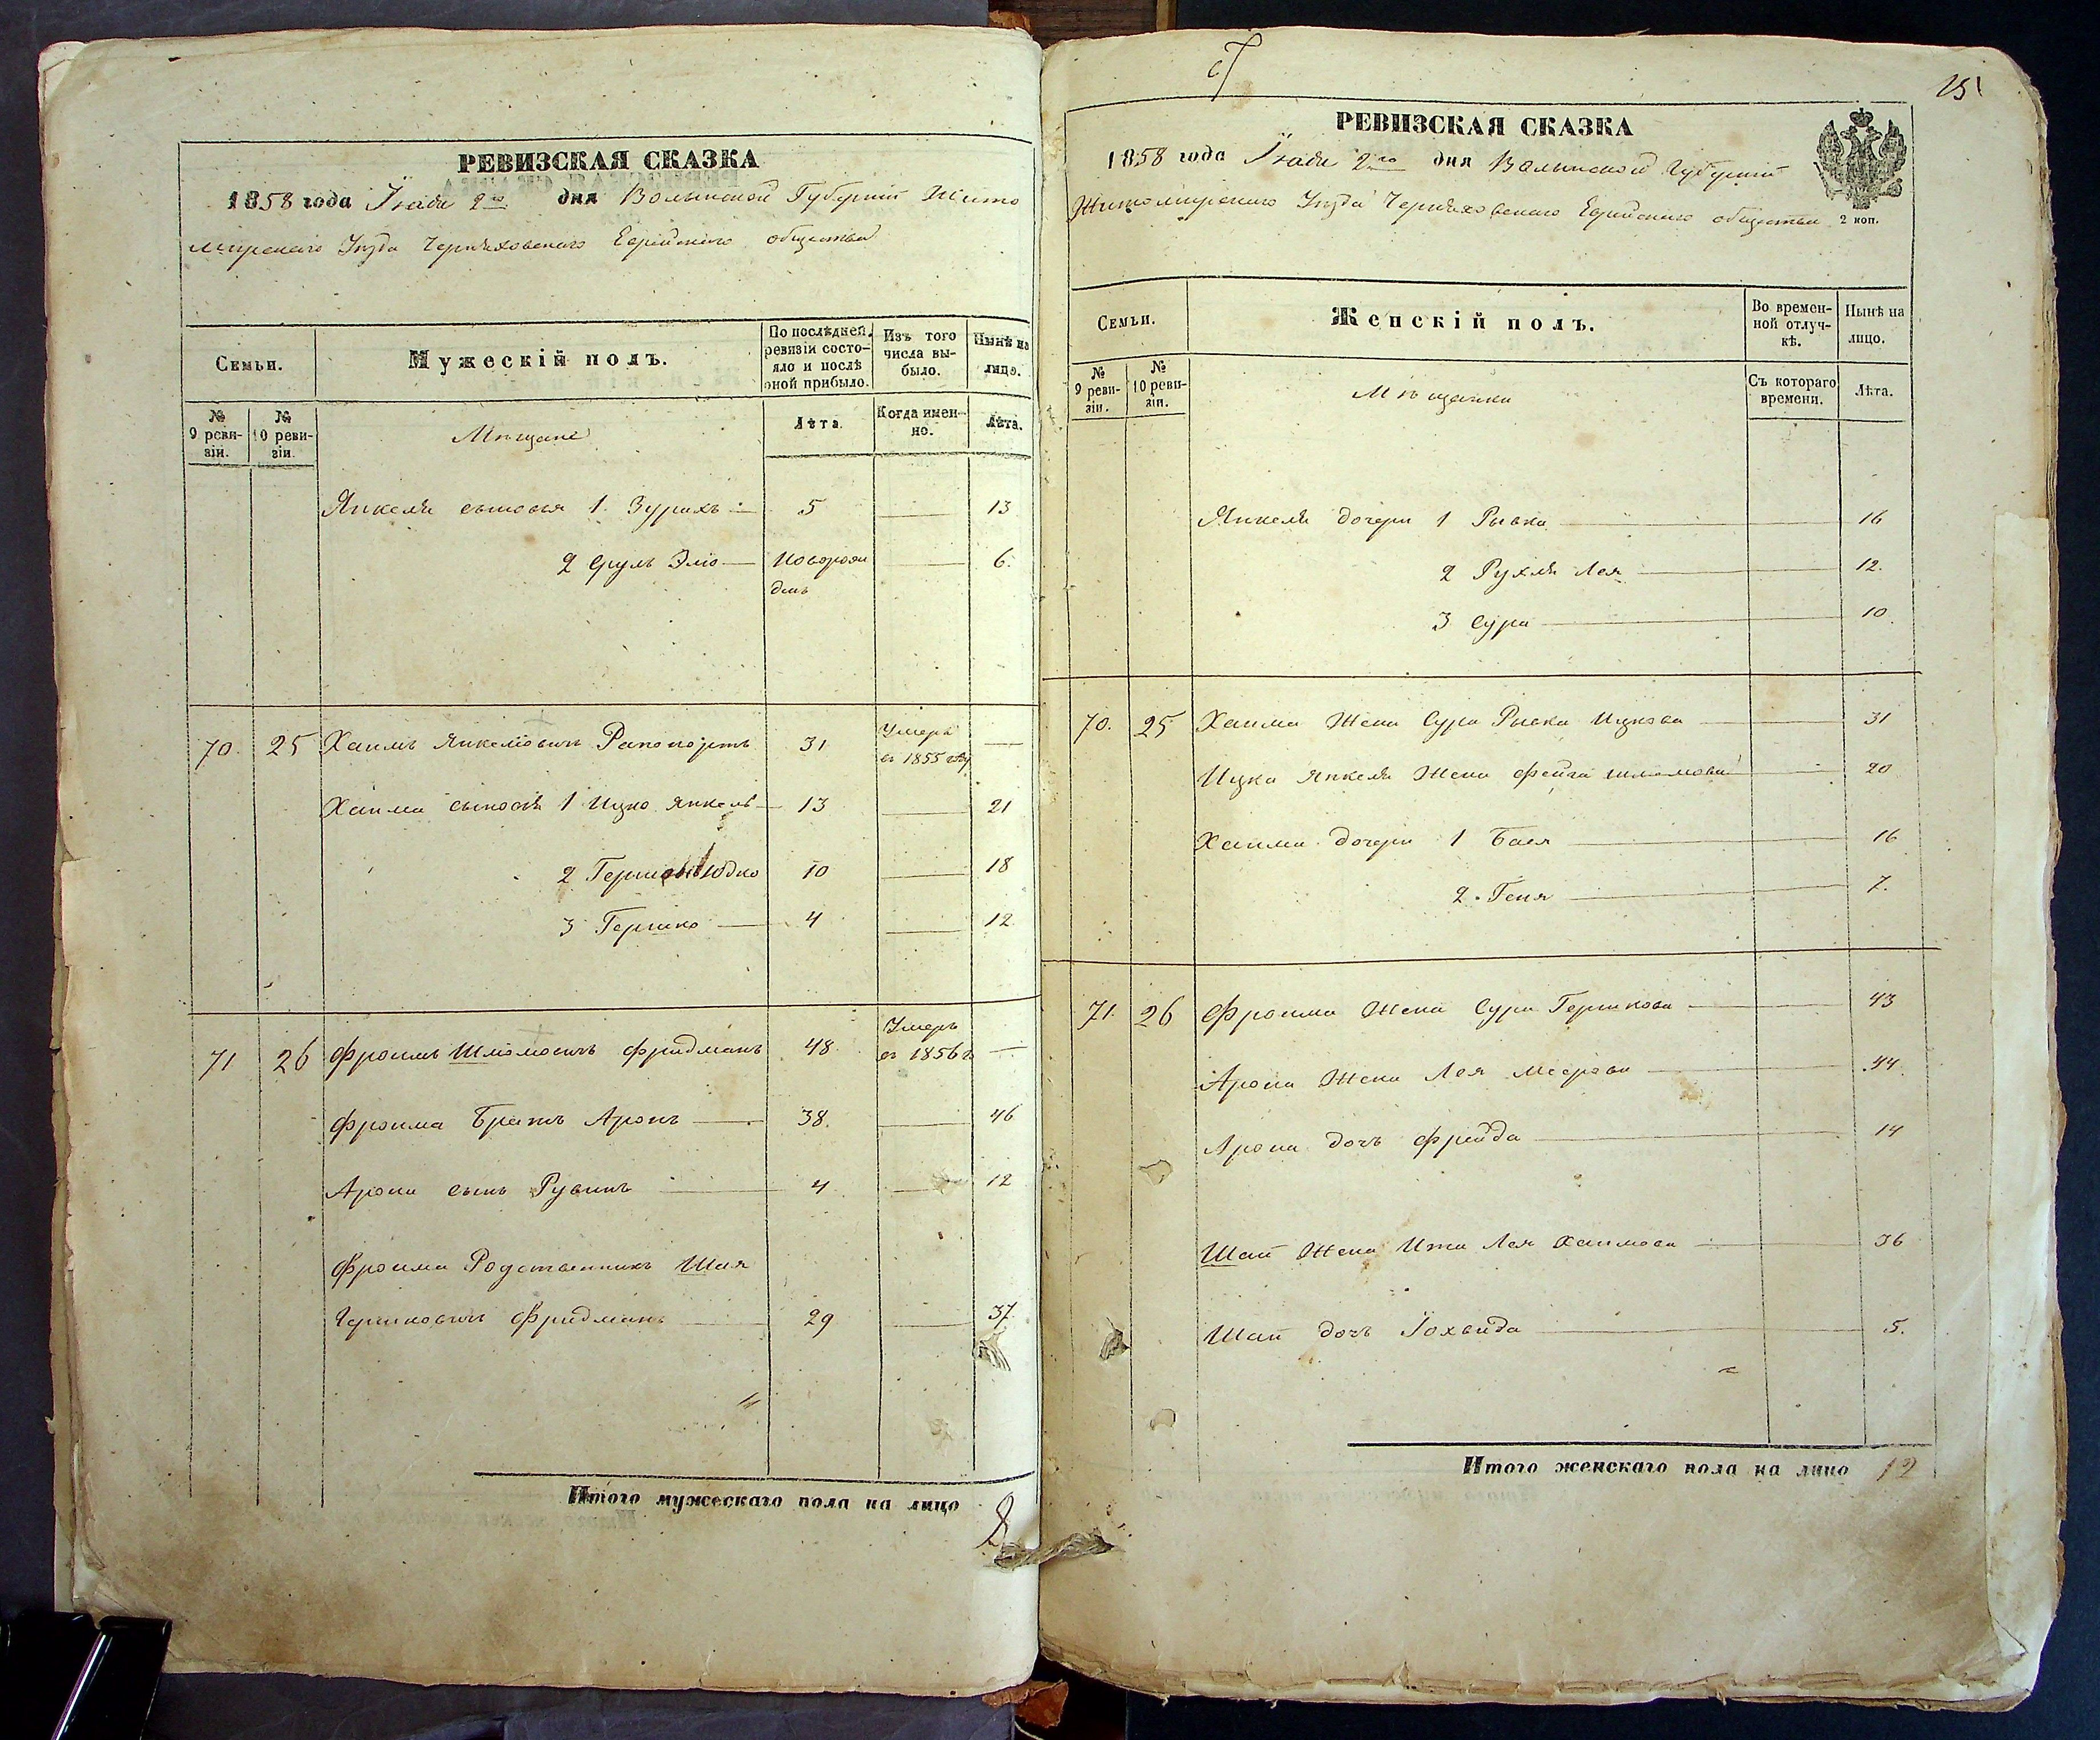 РЕВИЗСКАЯ СКАЗКА
1858 года Іюня 2го дня Волынской Губерніи Жито
мирскаго Уѣзда Черняховскаго Еврейскаго общества
Семьи.
Мужескій полъ.
По послѣдней ревизіи состояло и послѣ оной прибыло.
Изъ того числа выбыло.
Нынѣ на лицо.
№ 9 ревизіи.
№ 10 ревизіи.
Мѣщане
Лѣта.
Когда именно.
Лѣта.
Янкеля сыновья 1. Зурахъ 5 13
2 Сруль Эліо Новорож 6.
денъ
70. 25 Хаимъ Янкеліовичъ Рапопортъ 31 Умеръ
въ 1855 году
Хаима сыновья 1 Ицко Янкель 13 21
2 Юдко 10 18
3 Гершко 4 12
71 26 Фроимъ Шліомовичъ Фридманъ 48 Умеръ
въ 1856 г.
Фроима братъ Аронъ 38. 46
Арона сынъ Рувинъ 4 12
Фроима Родственникъ Шая
Гершковичъ Фридманъ 29 37
Итого мужескаго пола на лицо 8
15
РЕВИЗСКАЯ СКАЗКА
1858 года Іюня 2го дня Волынской Губерніи
Житомирскаго Уѣзда Черняховскаго Еврейскаго общества
2 коп.
Семьи.
Женскій полъ.
Во временной отлучкѣ.
Нынѣ на лицо.
№ 9 ревизіи.
№ 10 ревизіи.
Мѣщанки
Съ котораго времени.
Лѣта.
Янкеля дочери 1 Рывка 16
2 Рухля Лея 12.
3 Сура 10.
70. 25 Хаима Жена Сура Рывка Ицкова 31
Ицка Янкеля Жена Фейга Шліомова 20
Хаима дочери 1 Бася 16
2. Геня 7.
71. 26 Фроима Жена Сура Гершкова 43
Арона Жена Лея Меерова 44
Арона дочь Фрейда 14
Шаи Жена Ита Лея Хаимова 36
Шаи дочь Іохвида 5.
Итого женскаго пола на лицо 12